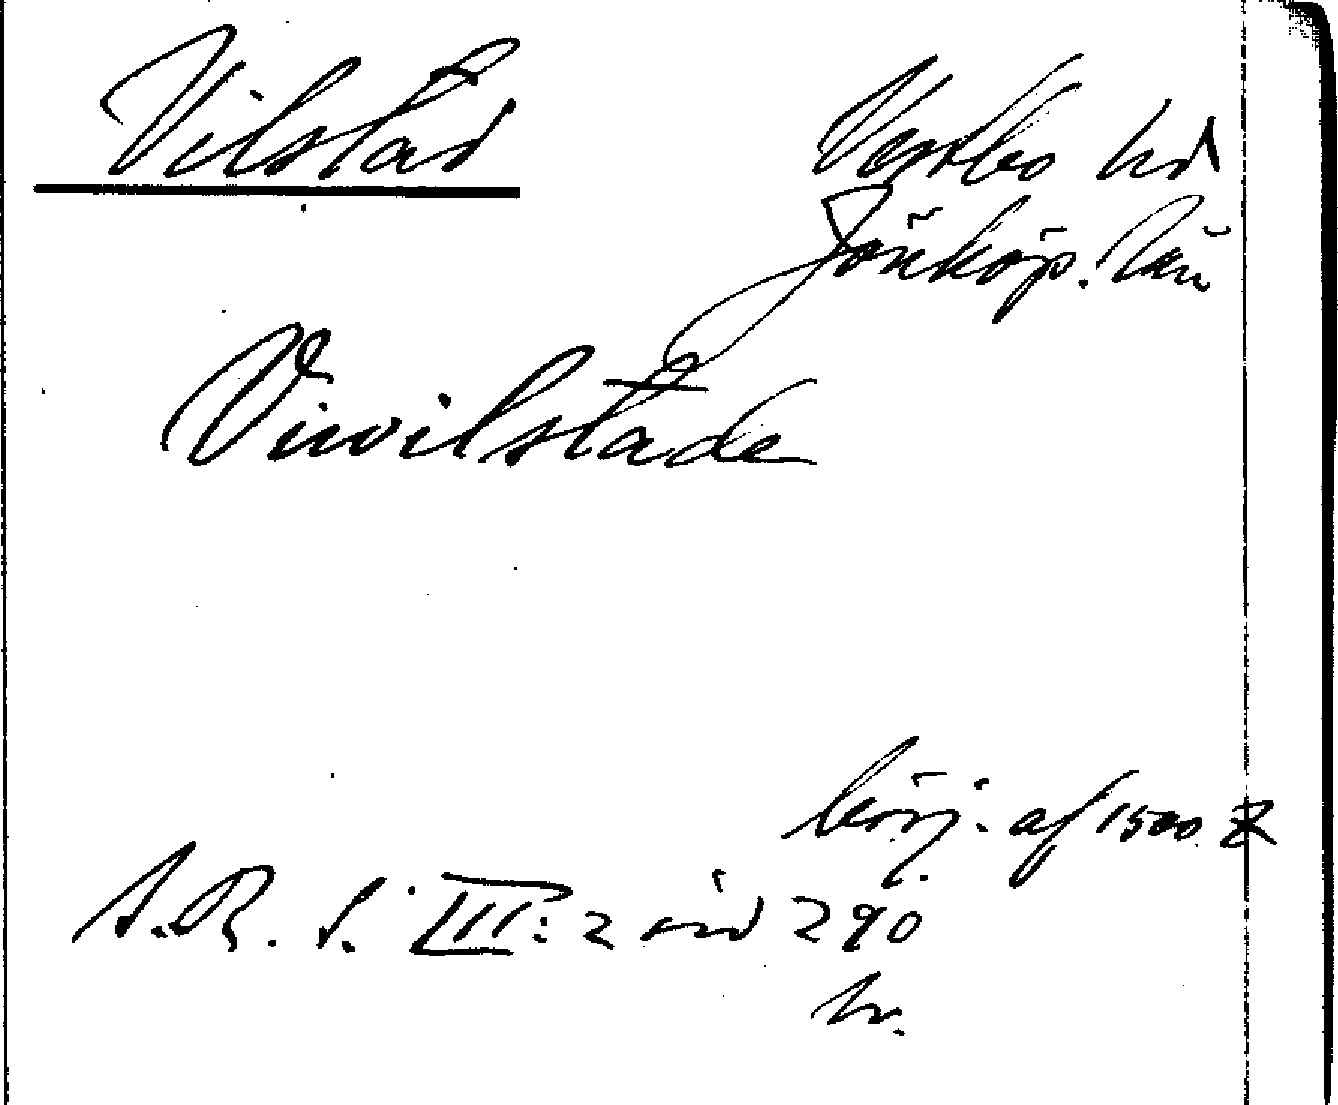 Vilstad
Vestbo hd
Jönköp. län
Viwilstada
börj. af 1500 t
S.R.S. III:2 sid 290
hr.